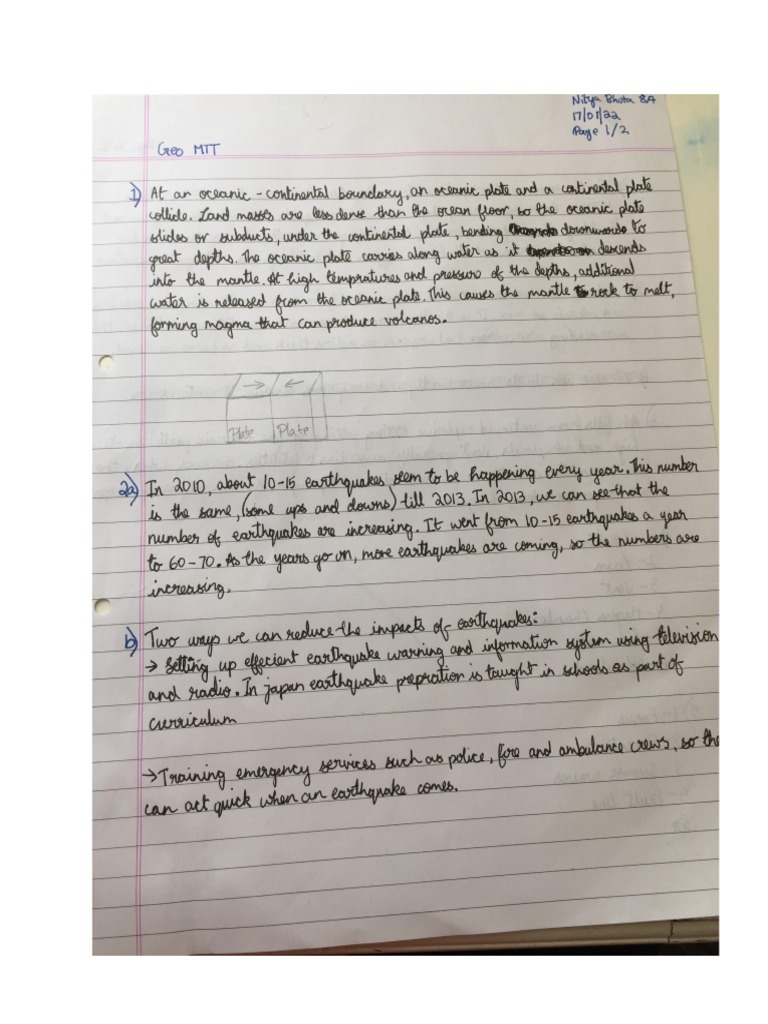 Nitya Bhuta 8A
17/01/22
Page 1/2
Geo MTT
1) At an oceanic - continental boundary, an oceanic plate and a continental plate
collide. Land masses are less dense than the ocean floor, so the oceanic plate
slides or subducts, under the continental plate, bending downwards to
great depths. The oceanic plate carries along water as it descends
into the mantle. At high tempratures and pressure of the depths, additional
water is released from the oceanic plate. This causes the mantle rock to melt,
forming magma that can produce volcanos.
Plate Plate
2a) In 2010, about 10-15 earthquakes seem to be happening every year. This number
is the same, (some ups and downs) till 2013. In 2013, we can see that the
number of earthquakes are increasing. It went from 10-15 earthquakes a year
to 60-70. As the years go on, more earthquakes are coming, so the numbers are
increasing.
b) Two ways we can reduce the impacts of earthquakes:
→ Setting up effecient earthquake warning and information system using television
and radio. In japan earthquake prepration is taught in schools as part of
curriculum
→ Training emergency services such as police, fire and ambulance crews, so the
can act quick when an earthquake comes.